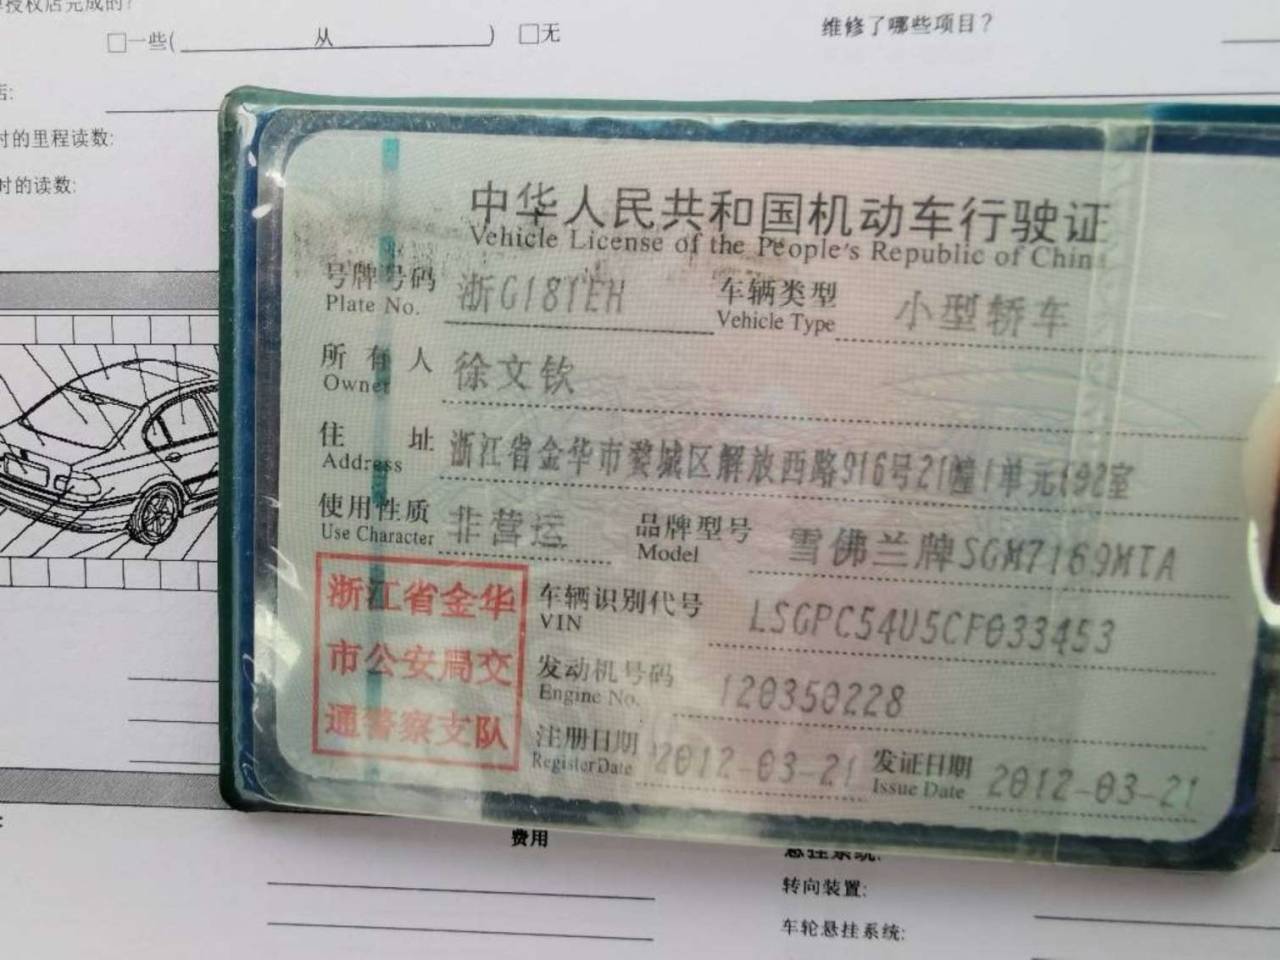 授权店完成的?
□一些( 从 ) □无
维修了哪些项目?
店:
时的里程读数:
时的读数:
中华人民共和国机动车行驶证
Vehicle License of the People's Republic of China
号牌号码 浙G181EH 车辆类型 小型轿车
Plate No. Vehicle Type
所有人 徐文钦
Owner
住址 浙江省金华市婺城区解放西路916号21幢1单元
Address
使用性质 非营运 品牌型号 雪佛兰牌SGM7169MTA
Use Character Model
浙江省金华
市公安局交
通警察支队
车辆识别代号 LSGPC54U5CF033453
VIN
发动机号码 120350228
Engine No.
注册日期 2012-03-21 发证日期 2012-03-21
Register Date Issue Date
费用
悬挂系统:
转向装置:
车轮悬挂系统: